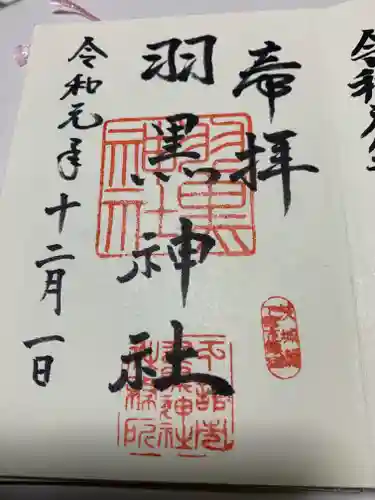 令和元年
奉拝
羽黒神社
羽黒神社
令和元年十二月一日